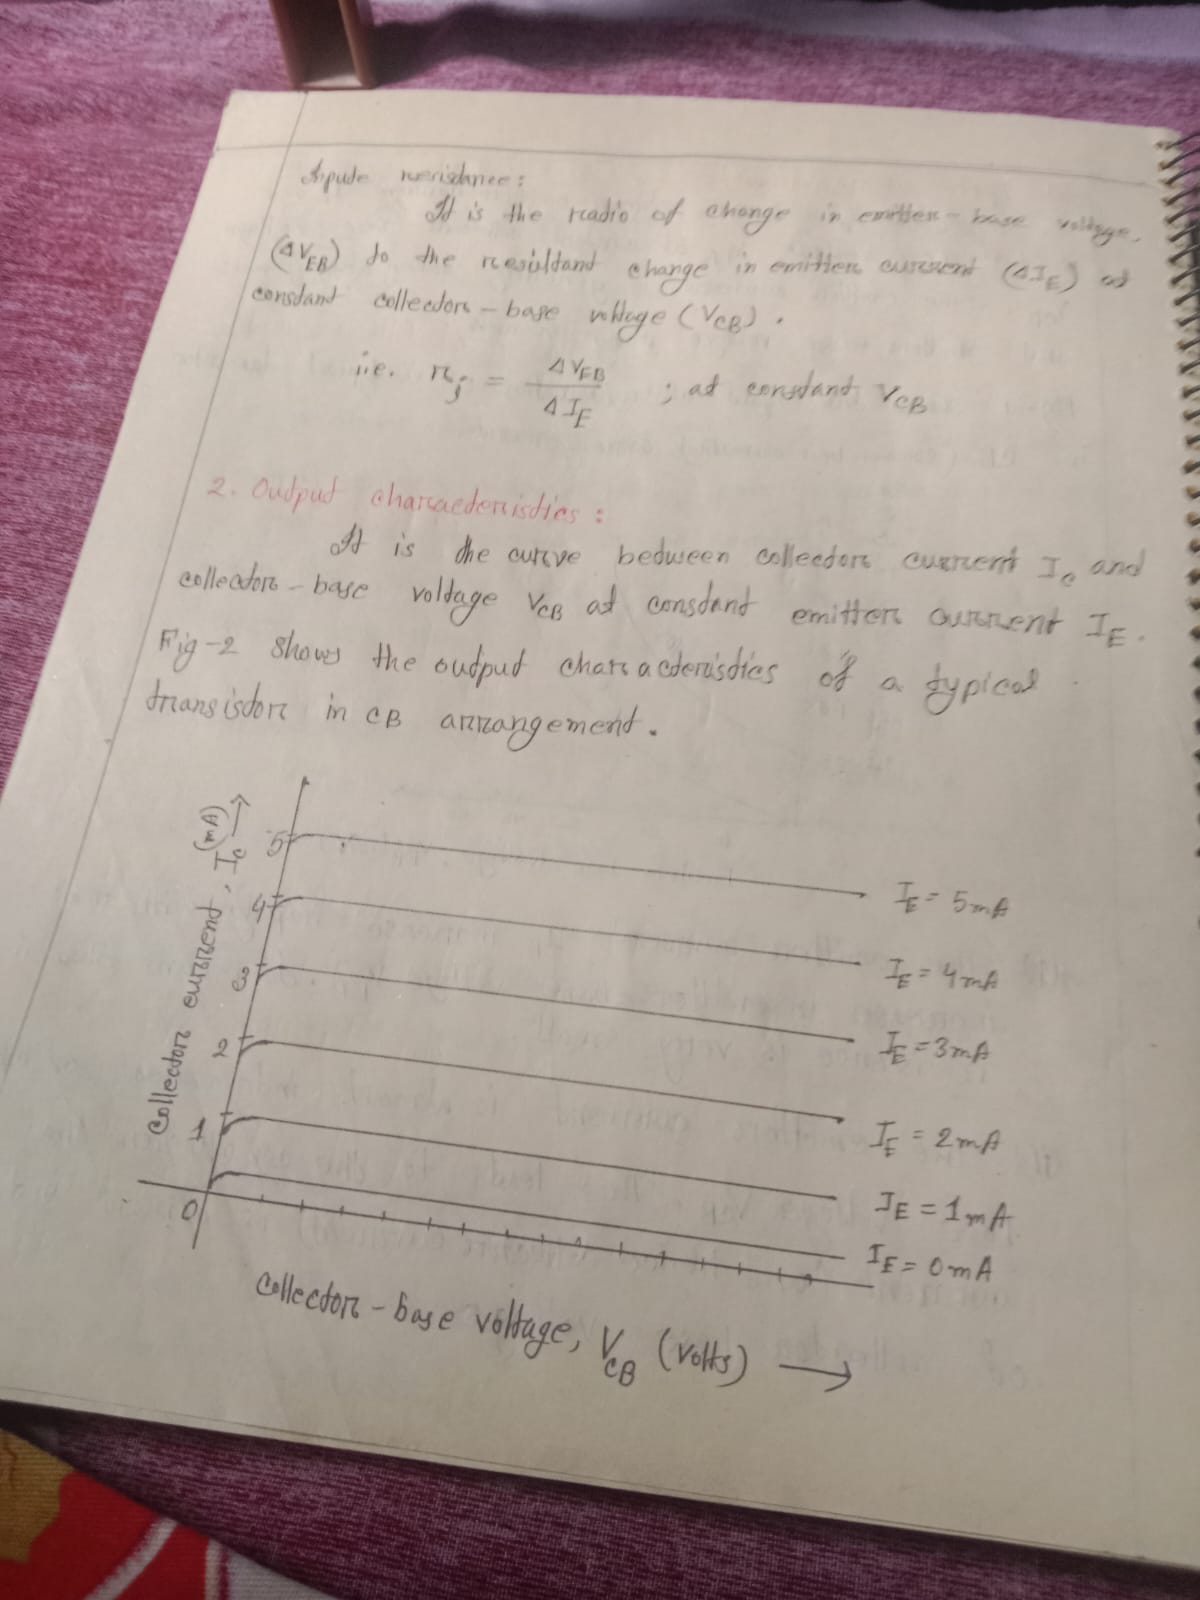 Inpute resistance:
It is the ratio of change in emitter-base voltage,
(ΔV_EB) to the resultant change in emitter current (ΔI_E) at
constant collector-base voltage (V_CB).
i.e. r_i = ΔV_EB / ΔI_E ; at constant V_CB
2. Output characteristics:
It is the curve between collector current I_c and
collector-base voltage V_CB at constant emitter current I_E.
Fig-2 shows the output characteristics of a typical
transistor in CB arrangement.
Collector current, I_c (mA) →
5
4
3
2
1
0
I_E = 5mA
I_E = 4mA
I_E = 3mA
I_E = 2mA
I_E = 1mA
I_E = 0mA
Collector-base voltage, V_CB (volts) →